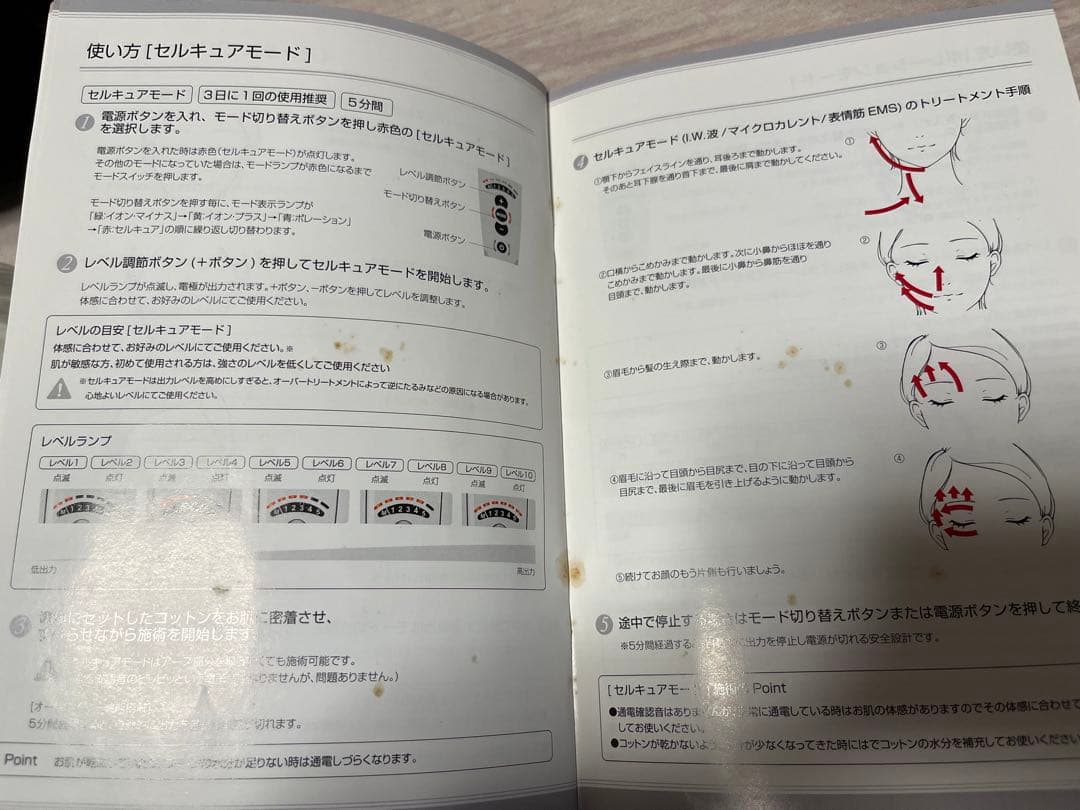 使い方 [セルキュアモード]
セルキュアモード 3日に1回の使用推奨 5分間
1 電源ボタンを入れ、モード切り替えボタンを押し赤色の [セルキュアモード]
を選択します。
電源ボタンを入れた時は赤色(セルキュアモード)が点灯します。
その他のモードになっていた場合は、モードランプが赤色になるまで
モードスイッチを押します。
モード切り替えボタンを押す毎に、モード表示ランプが
「緑:イオン・マイナス」→「黄:イオン・プラス」→「青:ポレーション」
→「赤:セルキュア」の順に繰り返し切り替わります。
レベル調節ボタン
モード切り替えボタン
電源ボタン
2 レベル調節ボタン(+ボタン)を押してセルキュアモードを開始します。
レベルランプが点滅し、電極が出力されます。+ボタン、−ボタンを押してレベルを調整します。
体感に合わせて、お好みのレベルにてご使用ください。
レベルの目安 [セルキュアモード]
体感に合わせて、お好みのレベルにてご使用ください。※
肌が敏感な方、初めて使用される方は、強さのレベルを低くしてご使用ください
※セルキュアモードは出力レベルを高めにしすぎると、オーバートリートメントによって逆にたるみなどの原因になる場合があります。
心地よいレベルにてご使用ください。
レベルランプ
レベル1 レベル2 レベル3 レベル4 レベル5 レベル6 レベル7 レベル8 レベル9 レベル10
点滅 点灯 点滅 点灯 点滅 点灯 点滅 点灯 点滅 点灯
低出力 高出力
3 にセットしたコットンをお肌に密着させ、
らせながら施術を開始します
ルキュアモードはアース部分を くても施術可能です。
りませんが、問題ありません。)
[オー
5分間 切れます。
Point お肌が乾 が足りない時は通電しづらくなります。
4 セルキュアモード (I.W.波 /マイクロカレント/ 表情筋 EMS) のトリートメント手順
①顎下からフェイスラインを通り、耳後ろまで動かします。
そのあと耳下腺を通り首下まで、最後に肩まで動かしてください。
①
②口横からこめかみまで動かします。次に小鼻からほほを通り
こめかみまで動かします。最後に小鼻から鼻筋を通り
目頭まで、動かします。
②
③眉毛から髪の生え際まで、動かします。
③
④眉毛に沿って目頭から目尻まで、目の下に沿って目頭から
目尻まで、最後に眉毛を引き上げるように動かします。
④
⑤続けてお顔のもう片側も行いましょう。
5 途中で停止す はモード切り替えボタンまたは電源ボタンを押して終
※5分間経過する に出力を停止し電源が切れる安全設計です。
[セルキュアモー Point
●通電確認音はありま 常に通電している時はお肌の体感がありますのでその体感に合わせて
してお使いください。
●コットンが乾かないよう が少なくなってきた時にはでコットンの水分を補充してお使いください